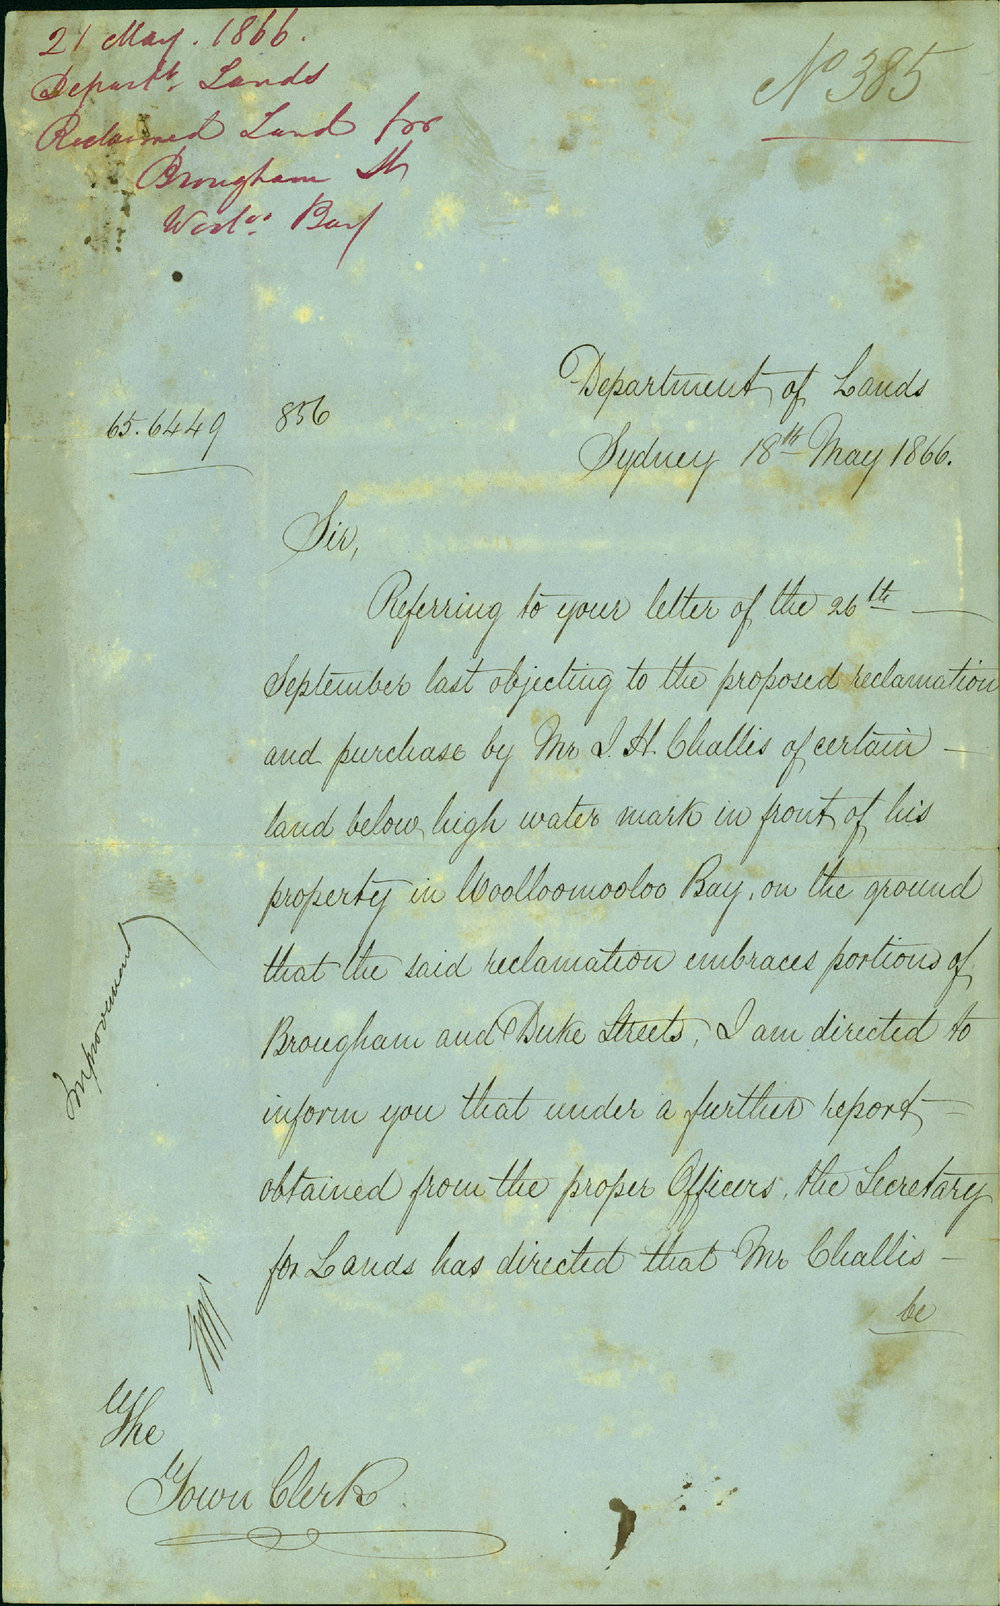 21 May. 1866.
Departt. Lands
Reclaimed Land for
Brougham St
Wool'oo. Bay
No 385
Department of Lands
65.6449 856
Sydney 18th May 1866.
Sir,
Referring to your letter of the 26th
September last objecting to the proposed reclamation
and purchase by Mr J. H. Challis of certain
land below high water mark in front of his
property in Woolloomooloo Bay, on the ground
that the said reclamation embraces portions of
Brougham and Duke Streets, I am directed to
inform you that under a further report
obtained from the proper Officers, the Secretary
for Lands has directed that Mr Challis
be
Improvement
The
Town Clerk